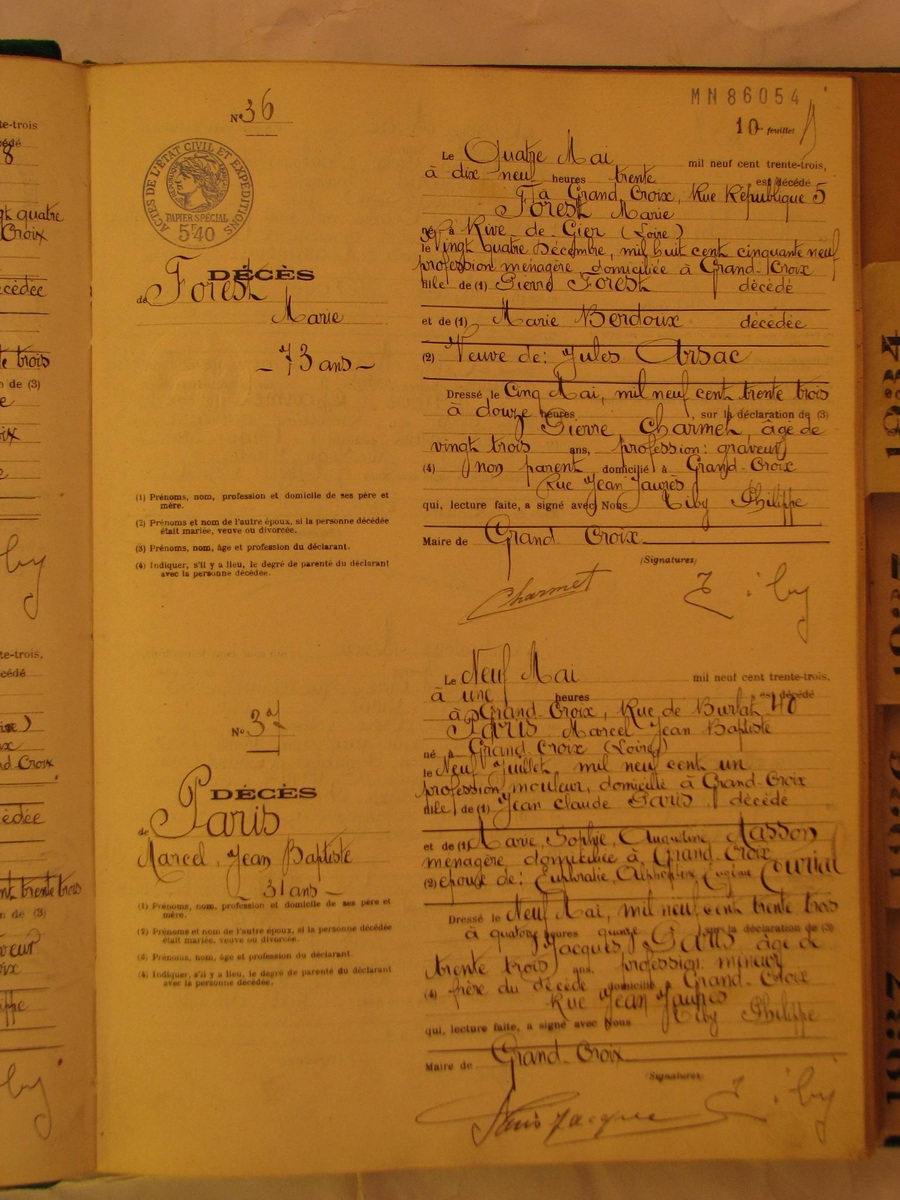 MN86054
10 feuillet
N° 36
ACTES DE L'ÉTAT CIVIL ET EXPÉDITIONS
PAPIER SPÉCIAL
5f40
DÉCÈS
de Forest
Marie
– 73 ans –
(1) Prénoms, nom, profession et domicile de ses père et
mère.
(2) Prénoms et nom de l'autre époux, si la personne décédée
était mariée, veuve ou divorcée.
(3) Prénoms, nom, âge et profession du déclarant.
(4) Indiquer, s'il y a lieu, le degré de parenté du déclarant
avec la personne décédée.
Le Quatre Mai mil neuf cent trente-trois,
à dix neuf heures trente est décédé
à Grand Croix, Rue République 5
Forest Marie
née à Rive-de-Gier (Loire)
le Vingt quatre Décembre, mil huit cent cinquante neuf
profession ménagère domiciliée à Grand-Croix
fille de (1) Pierre Forest décédé
et de (1) Marie Berdoux décédée
(2) Veuve de: Jules Arsac
Dressé le Cinq Mai, mil neuf cent trente trois
à douze heures, sur la déclaration de (3)
Pierre Charmet, âgé de
vingt trois ans, profession: graveur
(4) non parent domicilié à Grand-Croix
Rue Jean Jaurès
qui, lecture faite, a signé avec Nous Tiby Philippe
Maire de Grand Croix
(Signatures)
Charmet Tiby
N° 37
DÉCÈS
de Paris
Marcel Jean Baptiste
– 31 ans –
(1) Prénoms, nom, profession et domicile de ses père et
mère.
(2) Prénoms et nom de l'autre époux, si la personne décédée
était mariée, veuve ou divorcée.
(3) Prénoms, nom, âge et profession du déclarant.
(4) Indiquer, s'il y a lieu, le degré de parenté du déclarant
avec la personne décédée.
Le Neuf Mai mil neuf cent trente-trois,
à une heures est décédé
à Grand-Croix, Rue de Burlat 40
Paris Marcel Jean Baptiste
né à Grand-Croix (Loire)
le Neuf Juillet mil neuf cent un
profession mouleur, domicilié à Grand-Croix
fils de (1) Jean Claude Paris décédé
et de (1) Marie, Sophie, Augustine Masson
ménagère domiciliée à Grand-Croix
(2) époux de: Euphrasie, Alphonsine, Eugénie
Dressé le Neuf Mai, mil neuf cent trente trois
à quatorze heures quinze, sur la déclaration de (3)
Jacques Paris âgé de
trente trois ans, profession mineur
(4) frère du décédé domicilié à Grand-Croix
Rue Jean Jaurès
qui, lecture faite, a signé avec Nous Tiby Philippe
Maire de Grand-Croix
(Signatures)
Paris Jacques Tiby